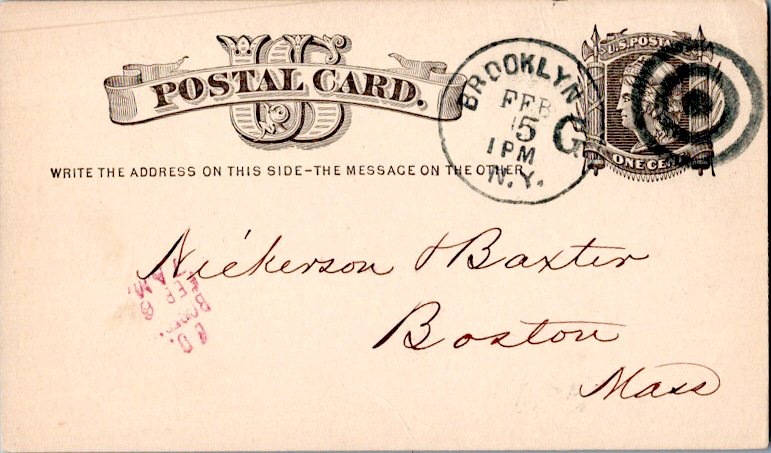 US
POSTAL CARD.
WRITE THE ADDRESS ON THIS SIDE-THE MESSAGE ON THE OTHER
BROOKLYN
FEB
5
1 PM
N.Y.
G
U.S. POSTAGE
ONE CENT
Nickerson & Baxter
Boston
Mass
AM.
FEB
6